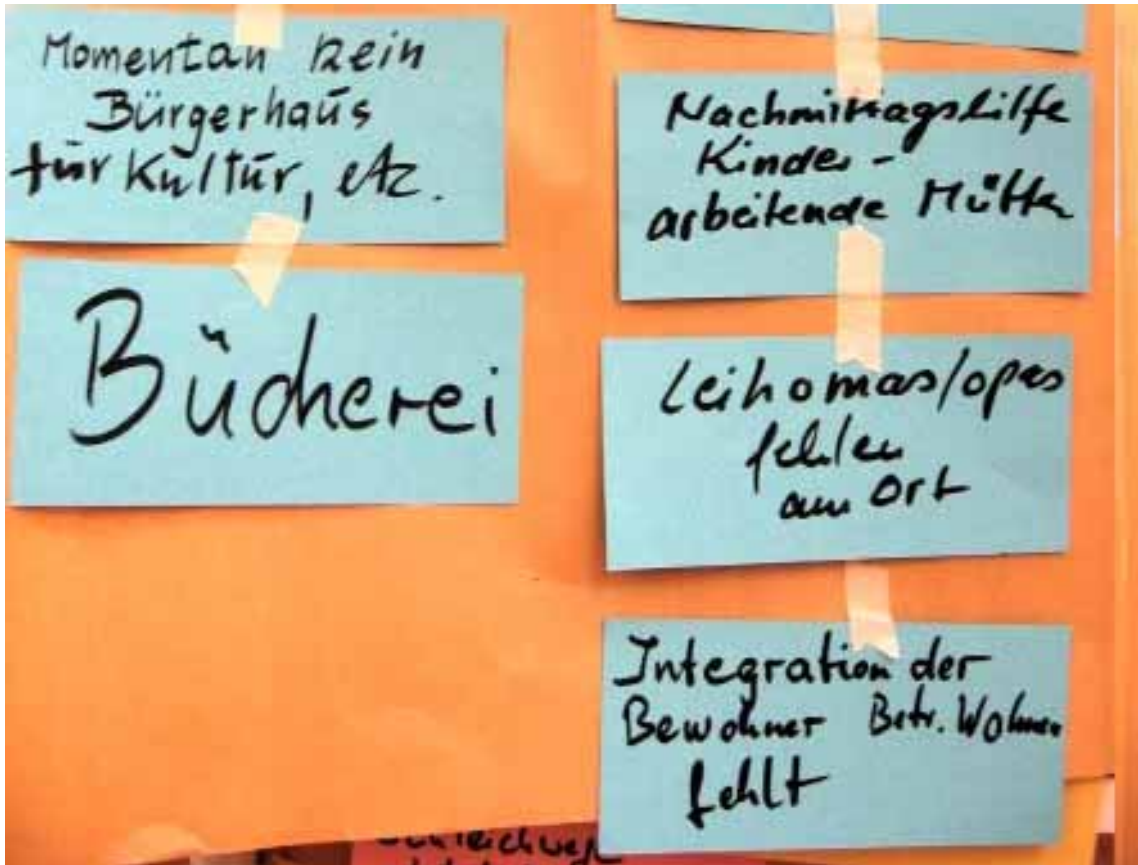 Momentan kein
Bürgerhaus
für Kultur, etc.
Bücherei
Nachmittagshilfe
Kinder -
arbeitende Mütter
Leihomas/opas
fehlen
am Ort
Integration der
Bewohner Betr. Wohnen
fehlt
Schleichwege